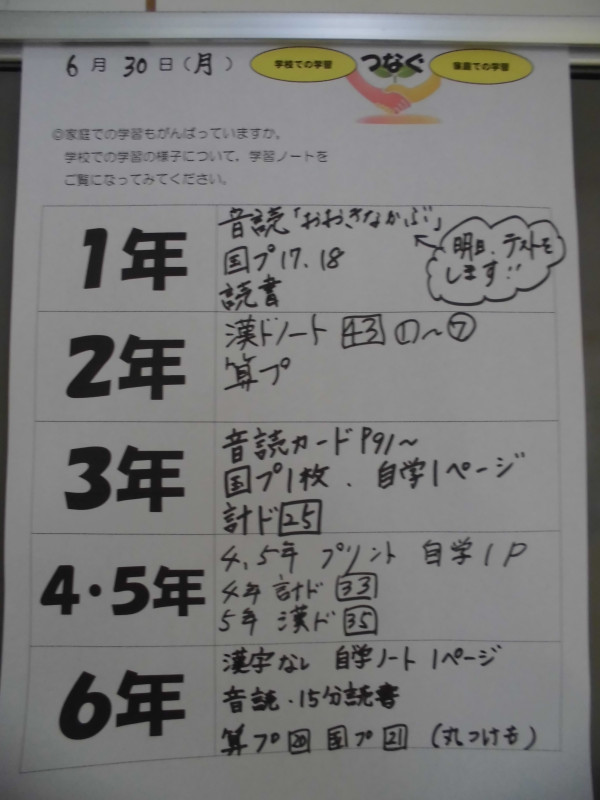 6月30日(月)
学校での学習 つなぐ 家庭での学習
◎家庭での学習もがんばっていますか。
学校での学習の様子について、学習ノートを
ご覧になってみてください。
1年
音読「おおきなかぶ」
国プ17、18
読書
明日、テストを
します!!
2年
漢ドノート 43 ①～⑦
算プ
3年
音読カード P91～
国プ1枚、自学1ページ
計ド25
4・5年
4、5年 プリント 自学1P
4年 計ド 33
5年 漢ド 35
6年
漢字なし 自学ノート 1ページ
音読・15分読書
算プ20 国プ21 (丸つけも)